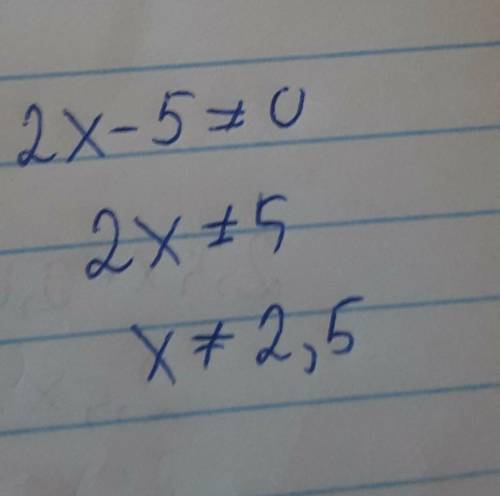 2x - 5 ≠ 0
2x ≠ 5
x ≠ 2,5